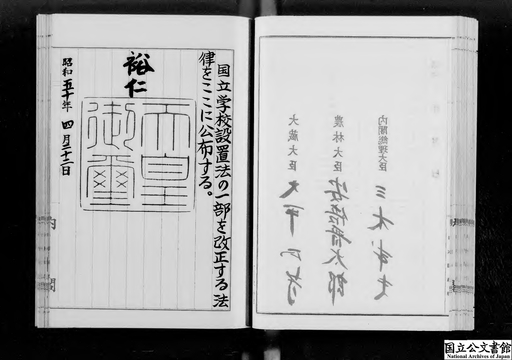 内閣総理大臣 三木武夫
農林大臣 安倍晋太郎
大蔵大臣 大平正芳
国立学校設置法の一部を改正する法
律をここに公布する。
裕仁
天皇
御璽
昭和五十年四月二十二日
内閣
国立公文書館
National Archives of Japan